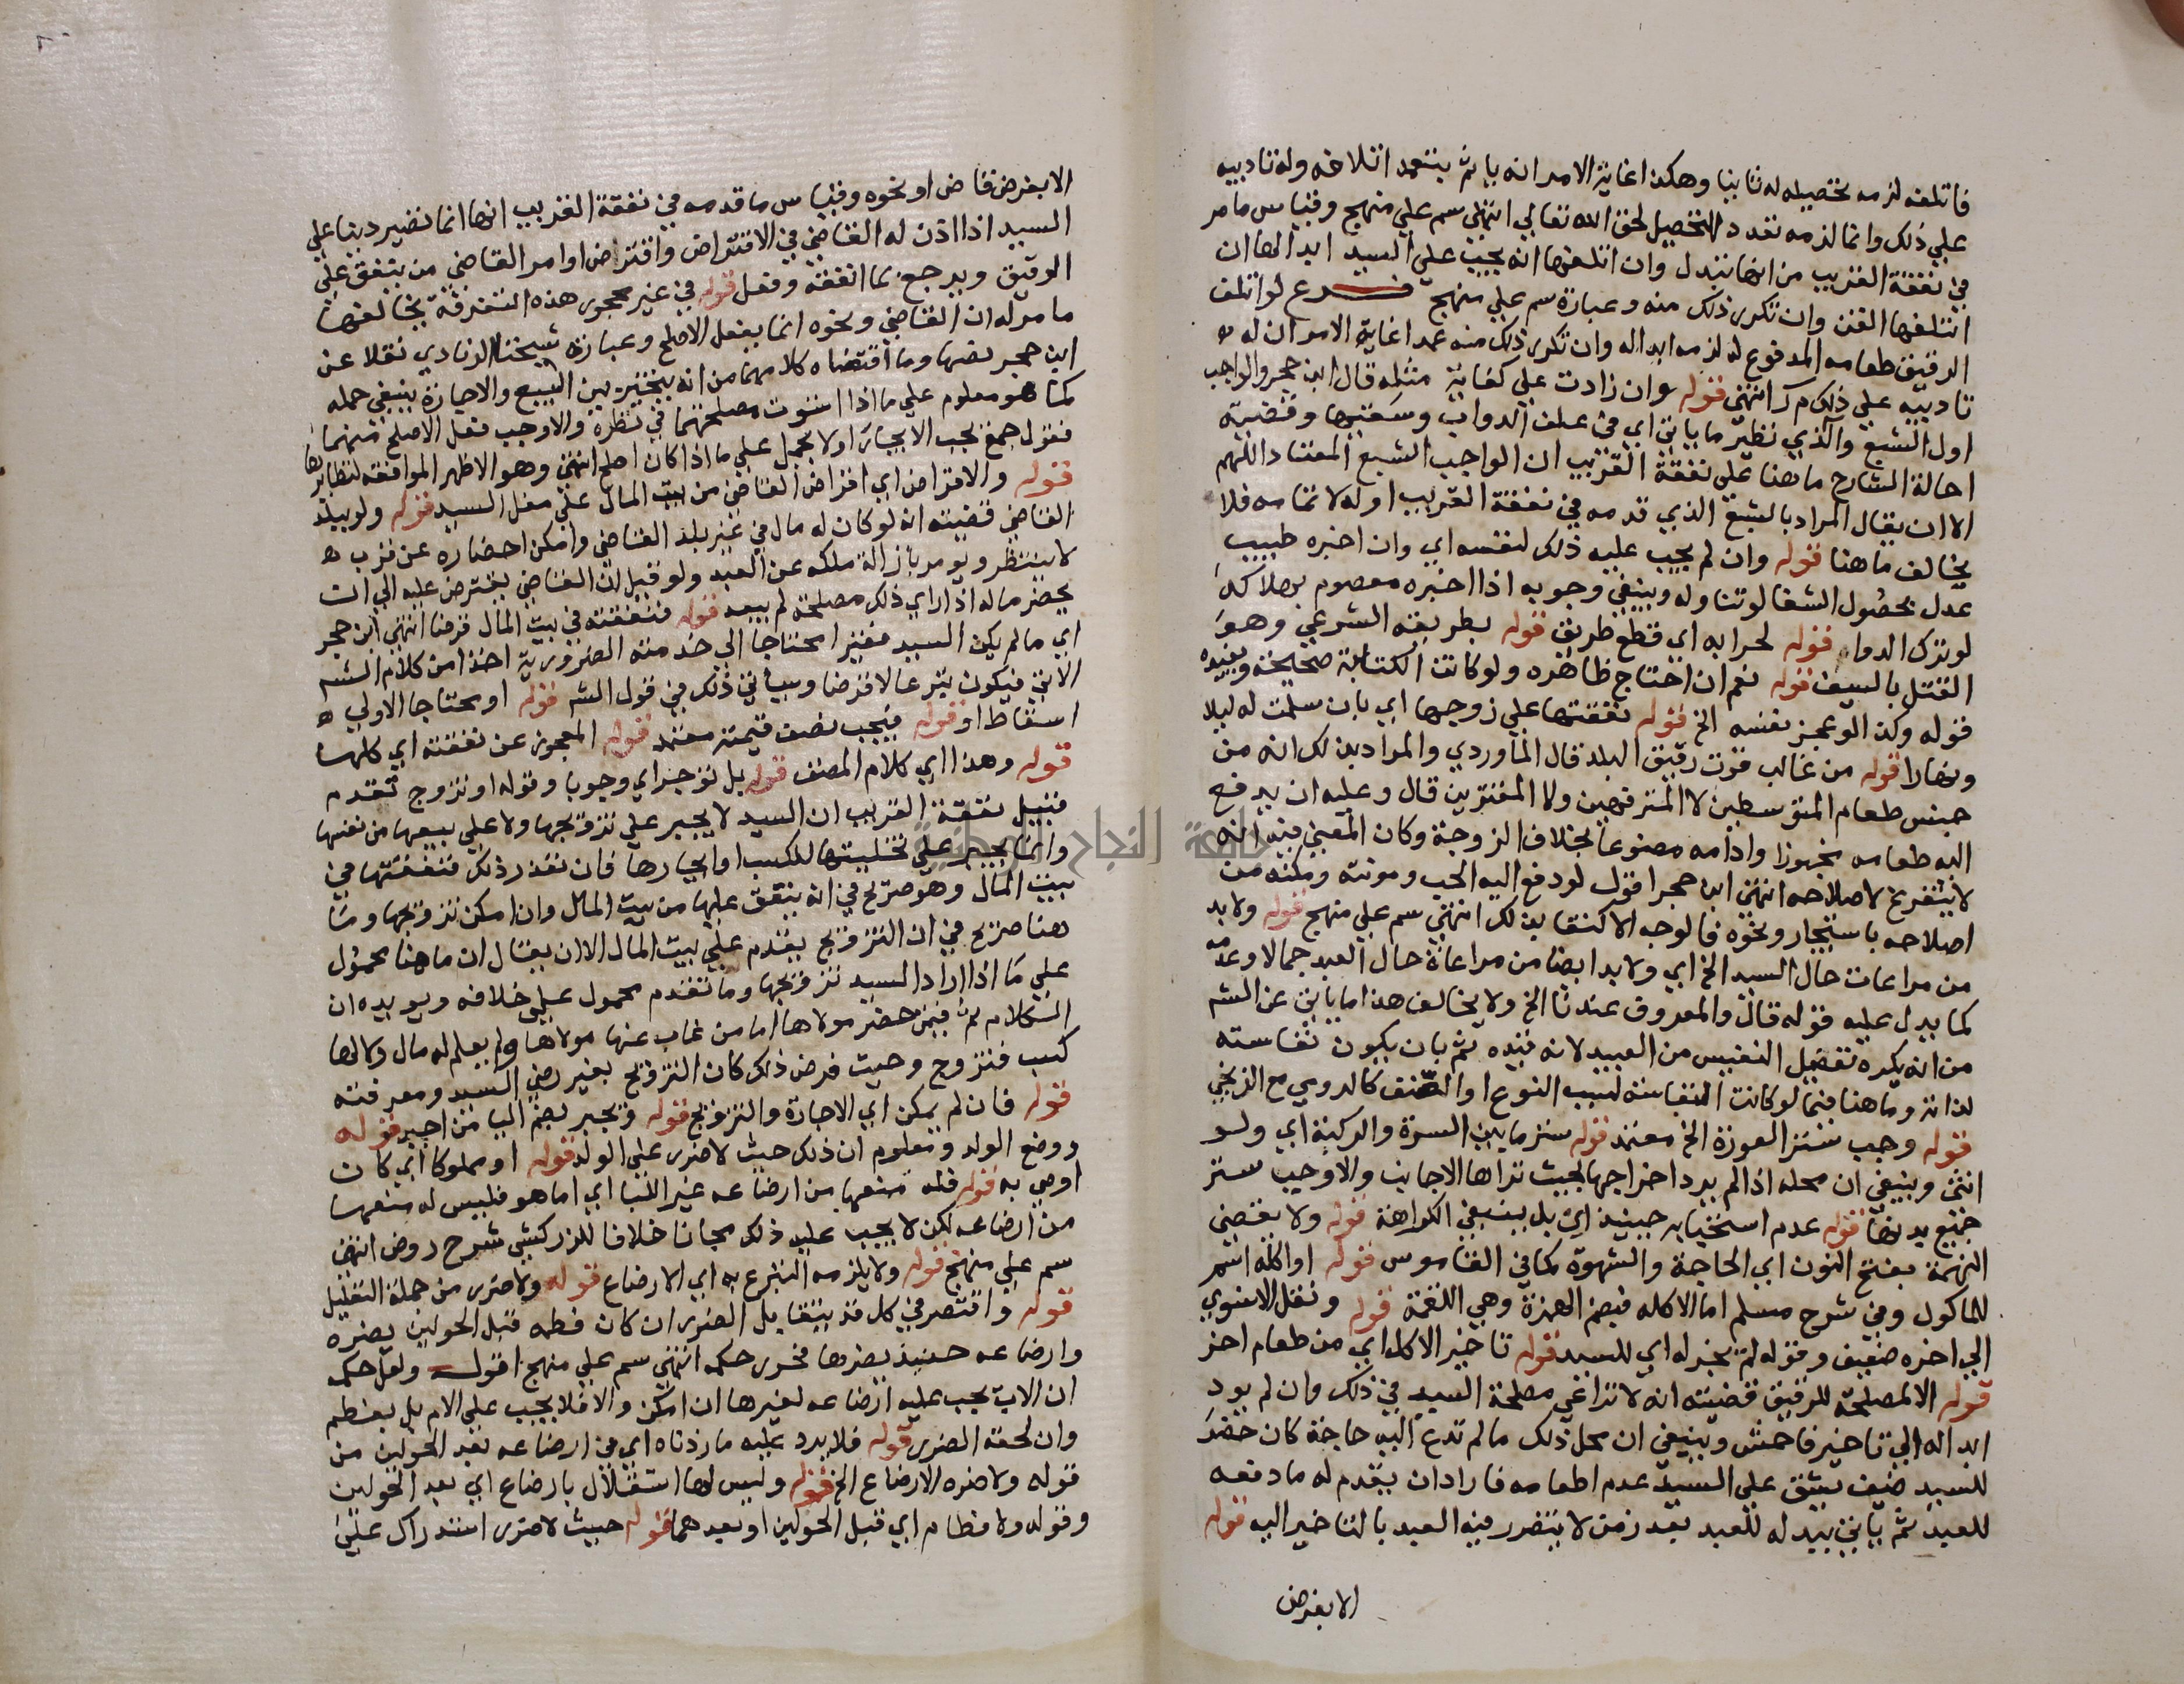 فاتلفه لزمه تحصيله له ثانيا وهكذا غاية الامر انه ياثم بتعمد اتلافه وله تاديبه
علي ذلك وانما لزمه تعدد التحصيل لحق الله تعالي انتهي سم علي منهج وقياس ما مر
في نفقة القريب من انها تبدل وان اتلفها انه يجب علي السيد ابدالها ان
اتلفها القن وان تكرر ذلك منه وعبارة سم علي منهج فرع لو اتلف
الرقيق طعامه المدفوع له لزمه ابداله وان تكرر ذلك منه عمدا غاية الامر ان له
تاديبه علي ذلك م ر انتهي قوله وان زادت علي كفاية مثله قال ابن حجر والواجب
اول الشبع والذي نظير ما ياتي اي في علف الدواب وسقيها وقضية
احالة الشارح ما هنا علي نفقة القريب ان الواجب الشبع المعتاد اللهم
الا ان يقال المراد بالشبع الذي قدمه في نفقة القريب اوله لا تمامه فلا
يخالف ما هنا قوله وان لم يجب عليه ذلك لنفسه اي وان اخبره طبيب
عدل بحصول الشفا لو تناوله وينبغي وجوبه اذا اخبره معصوم بهلاكه
لو ترك الدواء قوله لحرابه اي قطع طريق قوله بطريقه الشرعي وهو
القتل بالسيف قوله نعم ان احتاج ظاهره ولو كانت الكتابة صحيحة ويفيده
قوله وكذا لو عجز نفسه الخ قوله نفقتها علي زوجها اي بان سلمت له ليلا
ونهارا قوله من غالب قوت رقيق البلد قال الماوردي والمراد بذلك انه من
جنس طعام المتوسطين لا المترفهين ولا المقترين قال وعليه ان يدفع
اليه طعامه مخبوزا وادامه مصنوعا بخلاف الزوجة وكان المعني فيه انه
لا يتفرغ لاصلاحه انتهي ابن حجر اقول لو دفع اليه الحب ومونته ومكنه من
اصلاحه باستيجار ونحوه فالوجه الاكتفا بذلك انتهي سم علي منهج قوله ولا بد
من مراعات حال السيد الخ اي ولا بد ايضا من مراعاة حال العبد جمالا وعدمه
كما يدل عليه قوله قال والمعروف عندنا الخ ولا يخالف هذا ما ياتي عن الشه
من انه يكره تفضيل النفيس من العبيد لانه قيده ثم بان يكون نفاسته
لذاته وما هنا فيما لو كانت النفاسة لسبب النوع او الصنف كالرومي مع الزنجي
قوله وجب ستر العورة الخ معتمد قوله ستر ما بين السرة والركبة اي ولو
انثى وينبغي ان محله اذا لم يرد اخراجها بحيث تراها الاجانب والا وجب ستر
جميع بدنها قوله عدم استحبابه حينئذ اي بل ينبغي الكراهة قوله ولا يقضي
النهمة بفتح النون اي الحاجة والشهوة كما في القاموس قوله او اكله اشر
للماكول وفي شرح مسلم اما الاكله فبضم الهمزة وهي اللقمة قوله ونقل الاسنوي
الي اخره ضعيف وقوله لم يجز له اي للسيد قوله تاخير الاكل اي من طعام اخر
قوله الا لمصلحة للرقيق قضيته انه لا تراعي مصلحة السيد في ذلك وان لم يود
ابداله الي تاخير فاحش وينبغي ان محل ذلك ما لم تدع اليه حاجة كان حضر
للسيد ضيف يشق علي السيد عدم اطعامه فاراد ان يقدم له ما دفعه
للعبد ثم ياتي ببدله للعبد بعد زمن لا يتضرر فيه العبد بالتاخير اليه قوله
الا بقرض
الا بقرض قاض او نحوه وقياس ما قدمه في نفقة القريب انها انما تصير دينا علي
السيد اذا اذن له القاضي في الاقتراض واقترض او امر القاضي من ينفق علي
الرقيق ويرجع بما انفقه وفعل قوله في غير محجور هذه التفرقة يخالفها
ما مر له ان القاضي ونحوه انما يفعل الاصلح وعبارة شيخنا الزيادي نقلا عن
ابن حجر نصها وما اقتضاه كلامهما من انه يتخير بين البيع والاجارة ينبغي حمله
كما هو معلوم علي ما اذا استوت مصلحتهما في نظره والا وجب فعل الاصلح منهما
فقول جمع يجب الايجار اولا يحمل علي ما اذا كان اصلح انتهي وهو الاظهر الموافقه لنظايرها
قوله والاقتراض اي اقتراض القاضي من بيت المال علي مغل السيد قوله ولو ببلد
القاضي قضيته انه لو كان له مال في غير بلد القاضي وامكن احضاره عن قرب
لا ينتظر ويومر بازالة ملكه عن العبد ولو قيل ان القاضي يقترض عليه الي ان
يحضر ماله اذا راي ذلك مصلحة لم يبعد قوله فنفقته في بيت المال قرضا انتهي ابن حجر
اي ما لم يكن السيد فقيرا محتاجا الي خدمته الضرورية اخذا من كلام الشه
الاتي فيكون تبرعا لا قرضا وسياتي ذلك في قول الشه قوله او محتاجا الاولي
اسقاط او قوله فيجب نصف قيمته معتمد قوله المعجوز عن نفقته اي كلها
قوله وهذا اي كلام المصنف قوله بل توجر اي وجوبا وقوله او تزوج تقدم
قبيل نفقة القريب ان السيد لا يجبر علي تزويجها ولا علي بيعها من نفسها
وانما يجبر علي تخليتها للكسب او ايجارها فان تعذر ذلك فنفقتها في
بيت المال وهو صريح في انه ينفق عليها من بيت المال وان امكن تزويجها وما
هنا صريح في ان التزويج يقدم علي بيت المال الا ان يقال ان ما هنا محمول
علي ما اذا اراد السيد تزويجها وما تقدم محمول علي خلافه ويويده ان
الكلام ثم فيمن حضر مولاها اما من غاب عنها مولاها ولم يعلم له مال ولا لها
كسب فتزوج وحيث فرض ذلك كان التزويج بغير رضي السيد ومعرفته
قوله فان لم يمكن اي الاجارة والتزويج قوله وتجبر بضم اليا من اجبر قوله
ووضع الولد ومعلوم ان ذلك حيث لا ضرر علي الولد قوله او مملوكا اي كان
اوصي به قوله فله منعها من ارضاعه غير اللبا اي اما هو فليس له منعها
من ارضاعه لكن لا يجب عليه ذلك مجانا خلافا للزركشي شرح روض انتهي
سم علي منهج قوله ولا يلزمه التبرع به اي الارضاع قوله ولا ضرر من جملة التعليل
قوله واقتصر في كل قد يتقابل الضرر ان كان فطمه قبل الحولين يضره
وارضاعه حينئذ يضرها فحرر حكمه انتهي سم علي منهج اقول ولعل حكمه
ان الاب يجب عليه ارضاعه لغيرها ان امكن والا فلا يجب علي الام بل يفطم
وان لحقه الضرر قوله فلا يرد عليه ما زدناه اي من ارضاعه بعد الحولين من
قوله ولا ضره الارضاع الخ قوله وليس لها استقلال بارضاع اي بعد الحولين
وقوله ولا فطام اي قبل الحولين او بعدهما قوله حيث لا ضرر استدراك علي
جامعة النجاح الوطنية